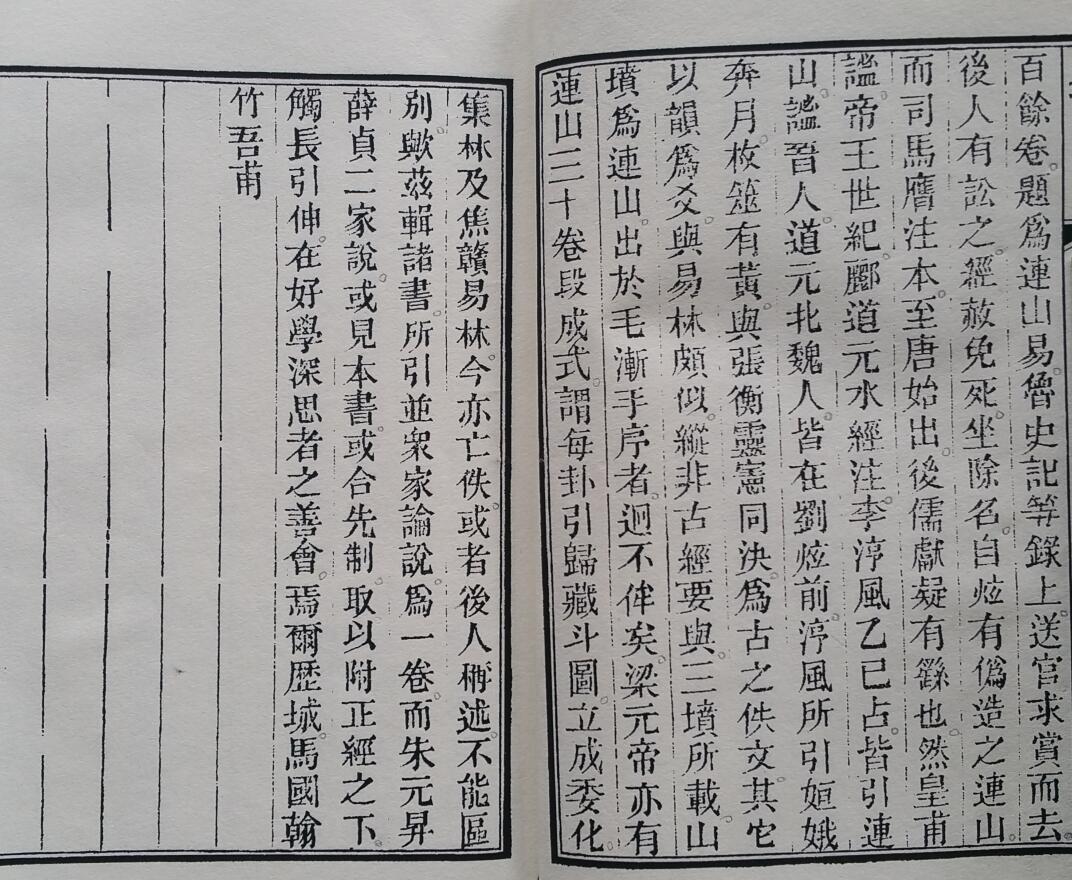 百餘卷。題爲連山易。魯史記等錄上。送官求賞而去
後人有訟之。經赦免死。坐除名。自炫有僞造之連山。
而司馬膺注本。至唐始出。後儒獻疑有繇也。然皇甫
謐帝王世紀。酈道元水經注。李淳風乙巳占。皆引連
山。謐晉人。道元北魏人。皆在劉炫前。淳風所引姮娥
奔月。枚筮有黃。與張衡靈憲同。決爲古之佚文。其它
以韻爲爻。與易林頗似。縱非古經。要與三墳所載。山
墳爲連山。出於毛漸手序者。迥不侔矣。梁元帝亦有
連山三十卷。段成式謂每卦引歸藏斗圖。立成委化。
集林及焦贛易林。今亦亡佚。或者後人稱述。不能區
別歟。茲輯諸書。所引並衆家論說。爲一卷。而朱元昇
薛貞二家說。或見本書。或合先制。取以附正經之下。
觸長引伸。在好學深思者之善會。焉爾歷城。馬國翰
竹吾甫